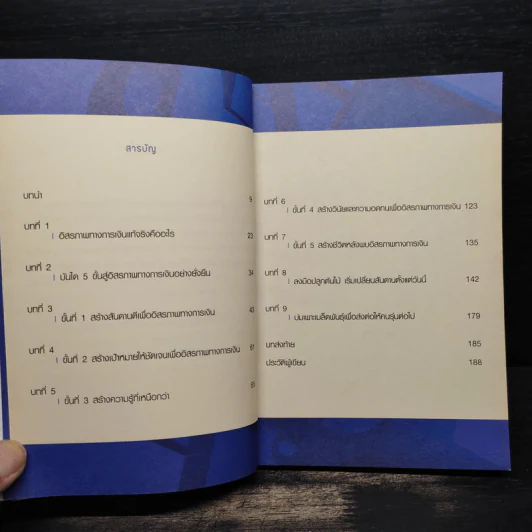 สารบัญ
บทนำ 9
บทที่ 1
| อิสรภาพทางการเงินแท้จริงคืออะไร 23
บทที่ 2
| บันได 5 ขั้นสู่อิสรภาพทางการเงินอย่างยั่งยืน 34
บทที่ 3
| ขั้นที่ 1 สร้างสันดานดีเพื่ออิสรภาพทางการเงิน
บทที่ 4
| ขั้นที่ 2 สร้างเป้าหมายให้ชัดเจนเพื่ออิสรภาพทางการเงิน
บทที่ 5
| ขั้นที่ 3 สร้างความรู้ที่เหนือกว่า
บทที่ 6
| ขั้นที่ 4 สร้างวินัยและความอดทนเพื่ออิสรภาพทางการเงิน 123
บทที่ 7
| ขั้นที่ 5 สร้างชีวิตหลังพบอิสรภาพทางการเงิน 135
บทที่ 8
| ลงมือปลูกต้นไม้ เริ่มเปลี่ยนสันดานตั้งแต่วันนี้ 142
บทที่ 9
| บ่มเพาะเมล็ดพันธุ์เพื่อส่งต่อให้คนรุ่นต่อไป 179
บทส่งท้าย 185
ประวัติผู้เขียน 188